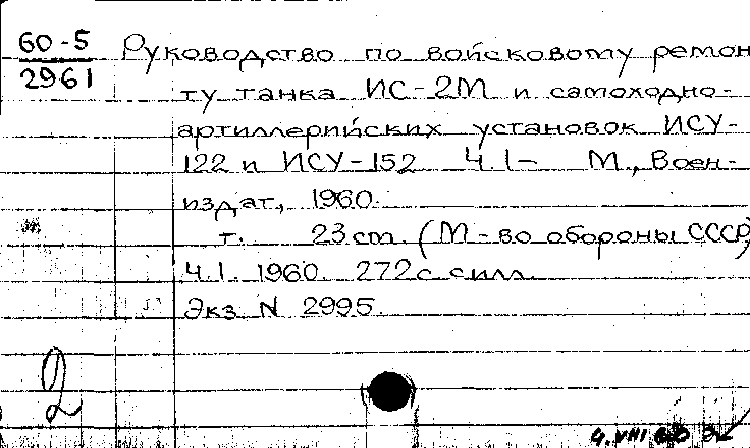 60-5
2961
Руководство по войсковому ремон
ту танка ИС-2М и самоходно-
артиллерийских установок ИСУ-
122 и ИСУ-152 Ч.1- М., Воен-
издат, 1960.
т. 23 cm. (М-во обороны СССР)
Ч.1. 1960. 272 с с илл.
Экз N 2995.
2
4.VIII